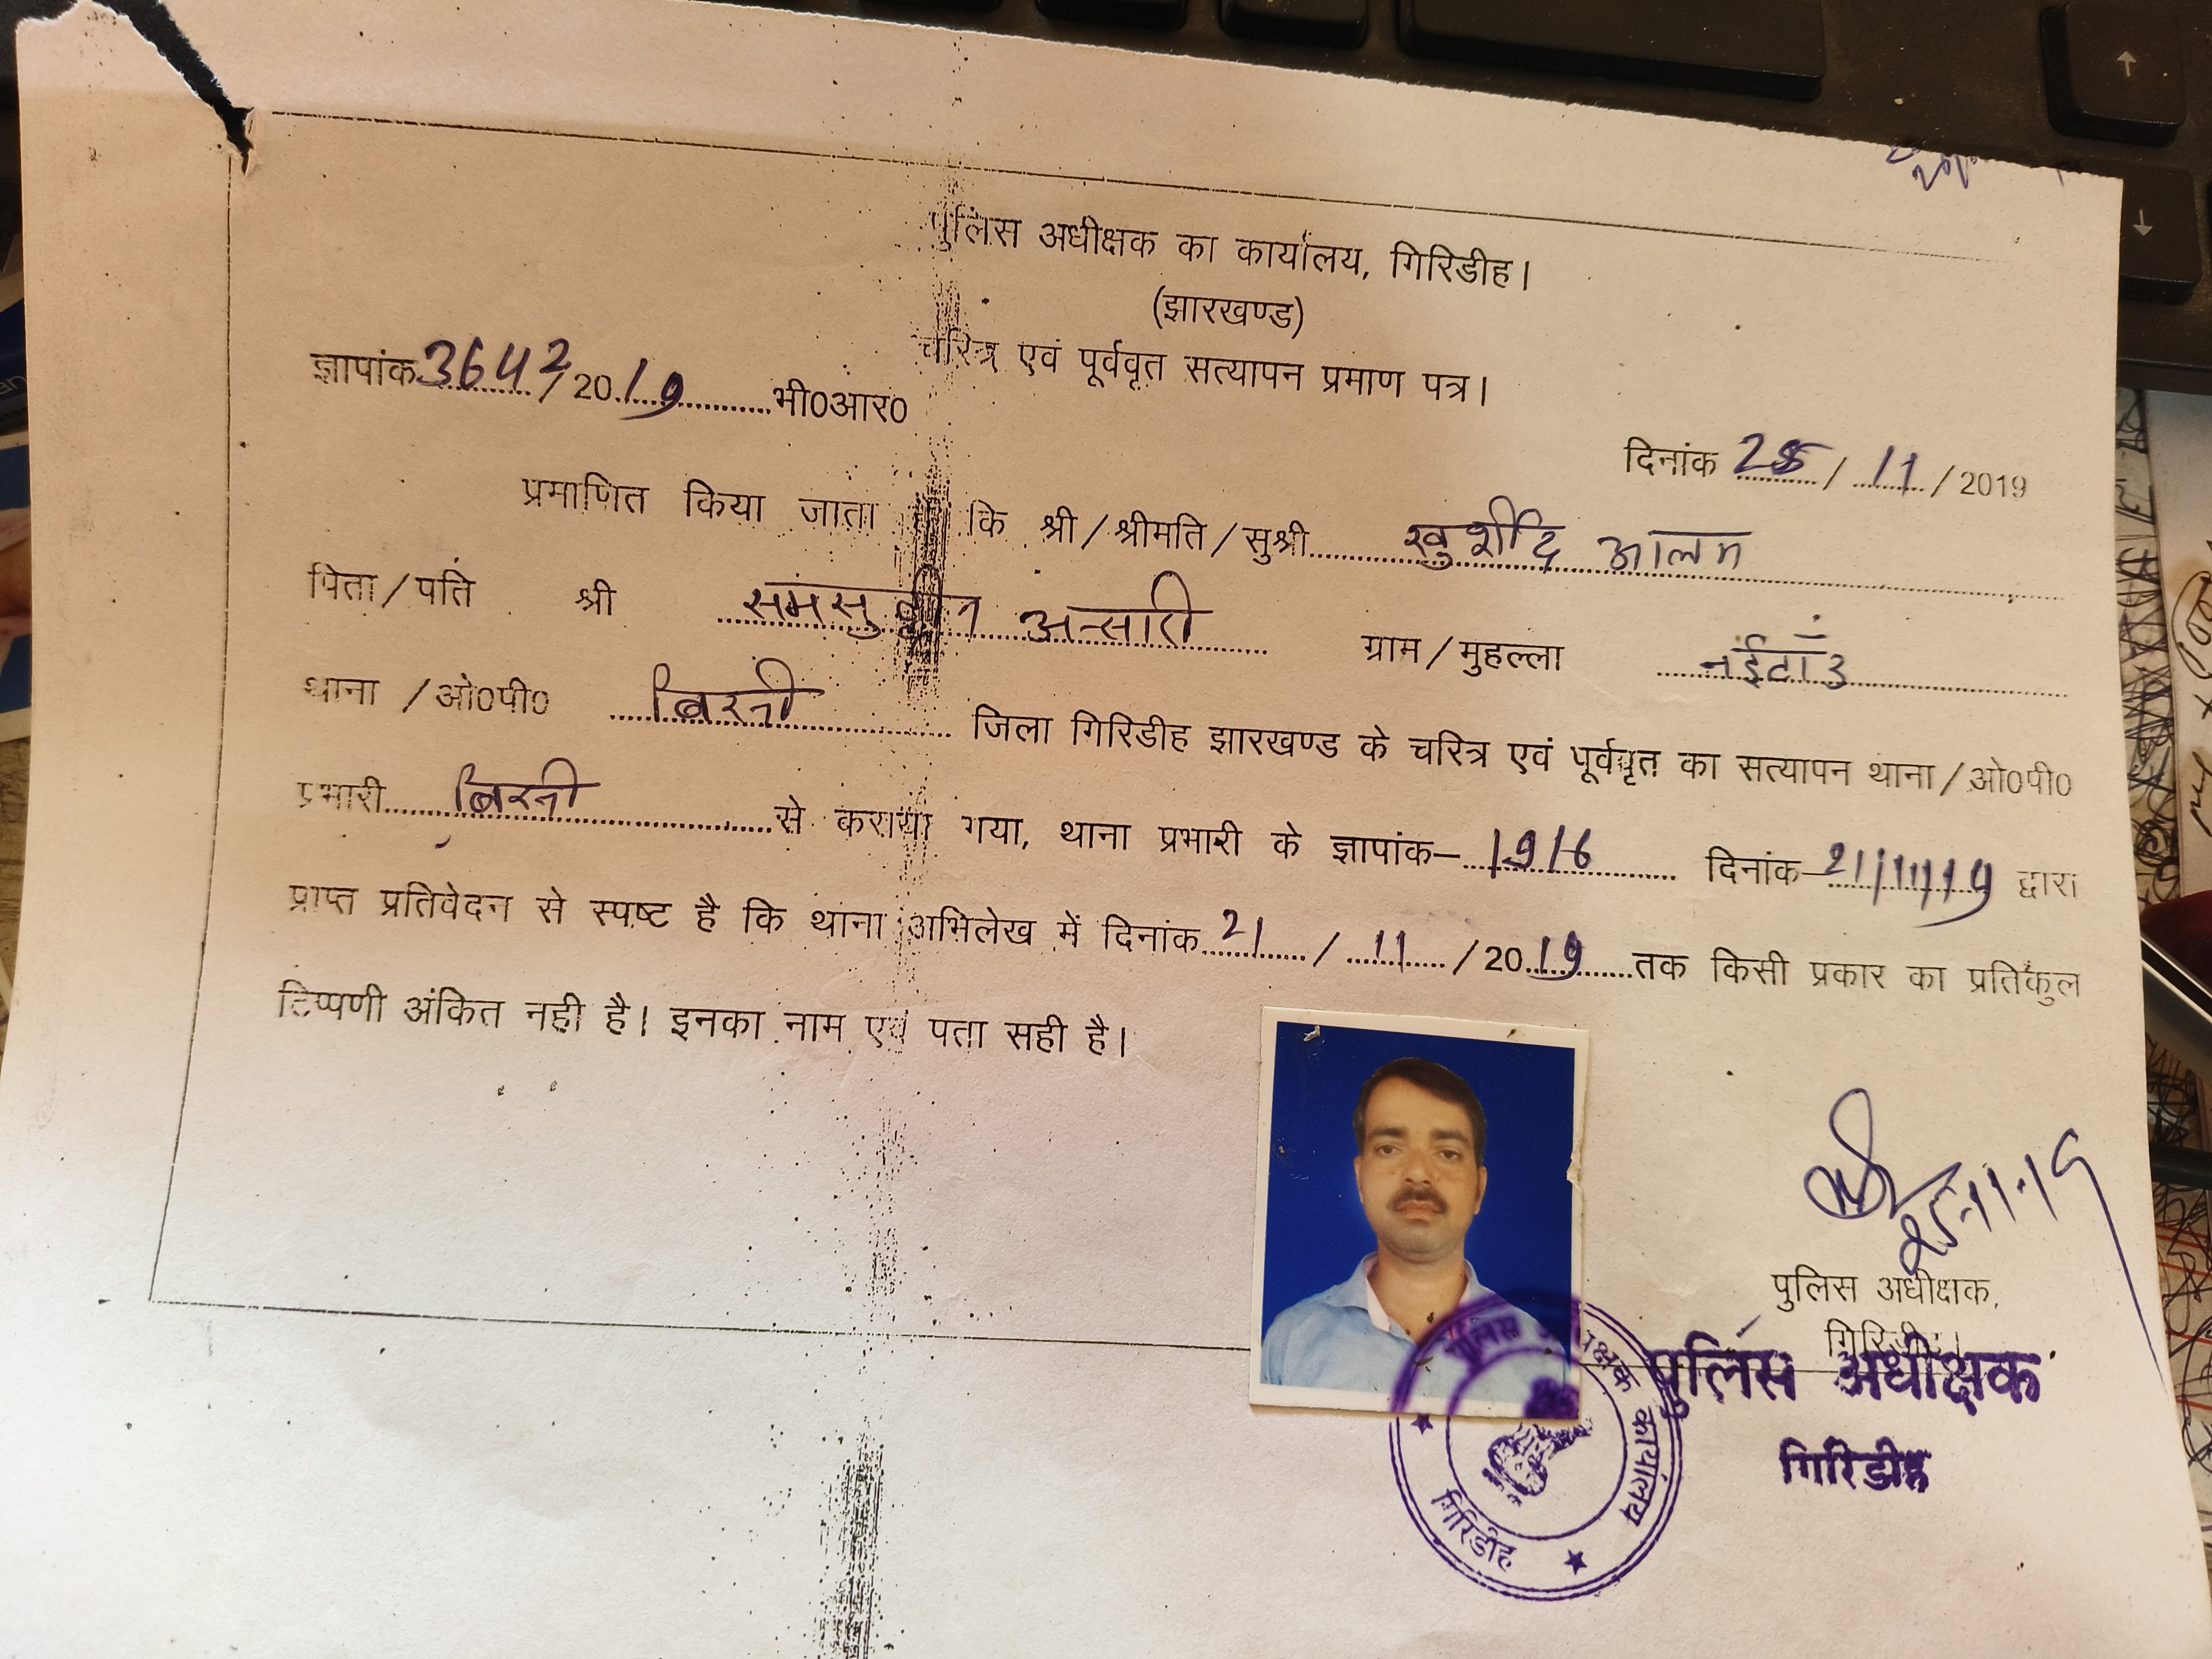 पुलिस अधीक्षक का कार्यालय, गिरिडीह।
(झारखण्ड)
चरित्र एवं पूर्ववृत सत्यापन प्रमाण पत्र।
ज्ञापांक 3642/2019 भी0आर0
दिनांक 25/11/2019
प्रमाणित किया जाता है कि श्री/श्रीमति/सुश्री खुर्शीद आलम
पिता/पति श्री समसुद्दीन अन्सारी ग्राम/मुहल्ला नईटाँड
थाना/ओ0पी0 बिरनी जिला गिरिडीह झारखण्ड के चरित्र एवं पूर्ववृत का सत्यापन थाना/ओ0पी0
प्रभारी बिरनी से कराया गया, थाना प्रभारी के ज्ञापांक– 1916 दिनांक– 21/11/19 द्वारा
प्राप्त प्रतिवेदन से स्पष्ट है कि थाना अभिलेख में दिनांक 21/11/2019 तक किसी प्रकार का प्रतिकुल
टिप्पणी अंकित नही है। इनका नाम एवं पता सही है।
25-11-19
पुलिस अधीक्षक,
गिरिडीह।
पुलिस अधीक्षक
गिरिडीह
पुलिस अधीक्षक कार्यालय
गिरिडीह